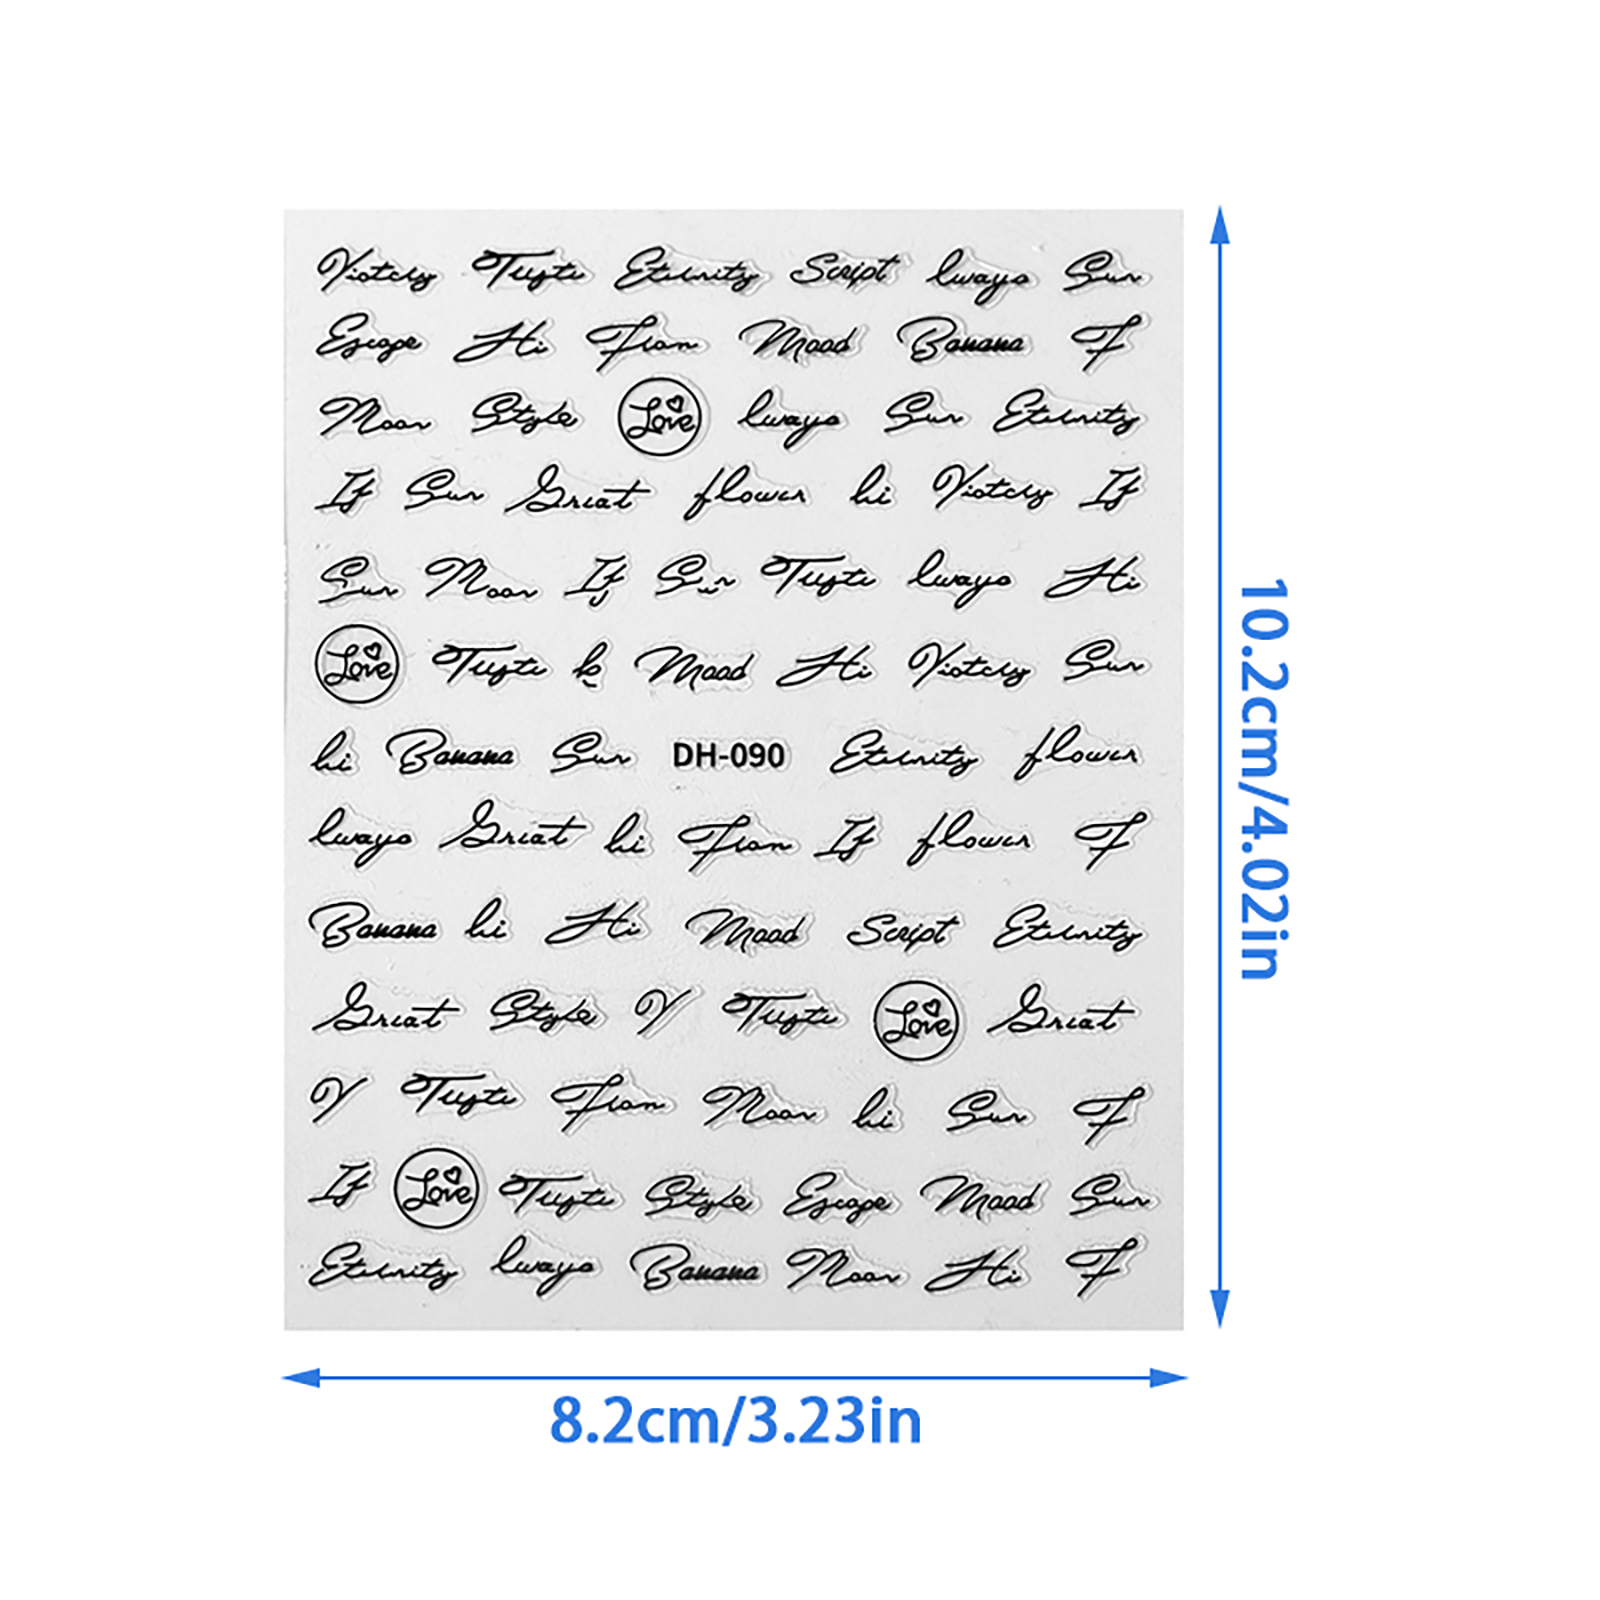 Viotcry Tujte Eternity Script lways Sun
Escape Hi Fian Mood Banana F
Moon Style Love lways Sun Eternity
If Sun Great flower hi Viotcry If
Sun Moon If Sun Tujte lways Hi
Love Tujte Mood Hi Viotcry Sun
hi Banana Sun DH-090 Eternity flower
lways Great hi Fian If flower F
Banana hi Hi Mood Script Eternity
Great Style Y Tujte Love Great
Y Tujte Fian Moon hi Sun F
If Love Tujte Style Escape Mood Sun
Eternity lways Banana Moon Hi F
10.2cm/4.02in
8.2cm/3.23in